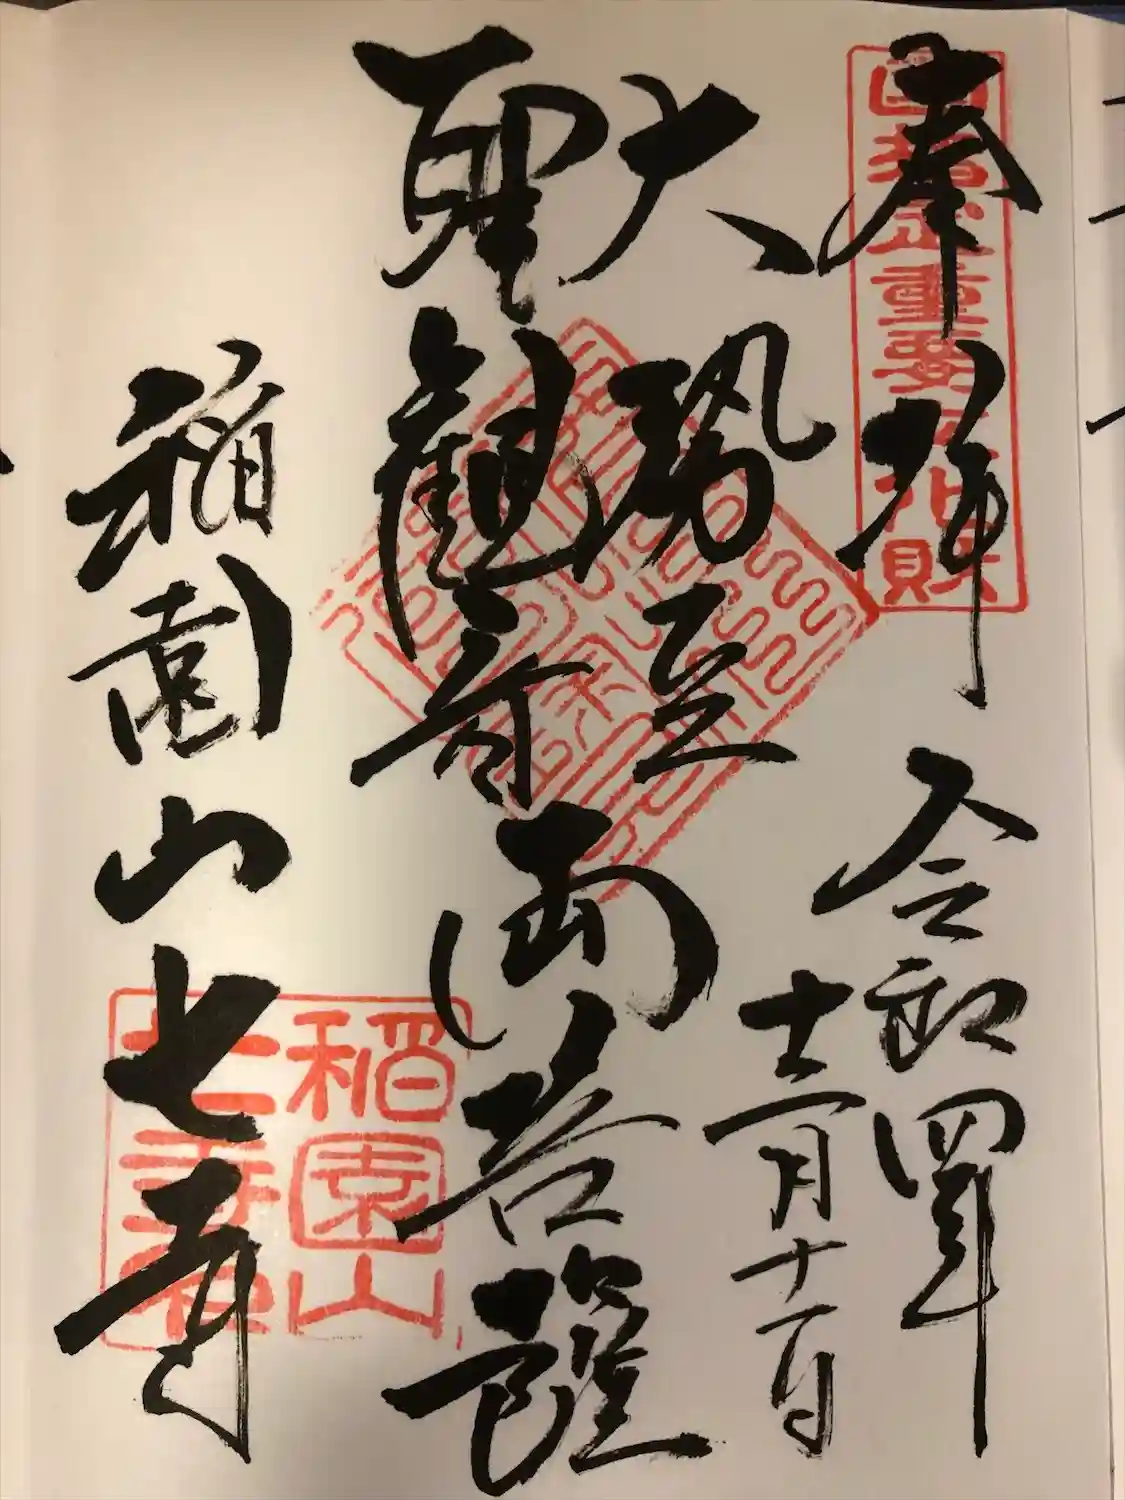 奉拝
令和四年
十二月十一日
大勢至
聖観音両菩薩
稲園山七寺
国指定重要文化財
稲園山
七寺